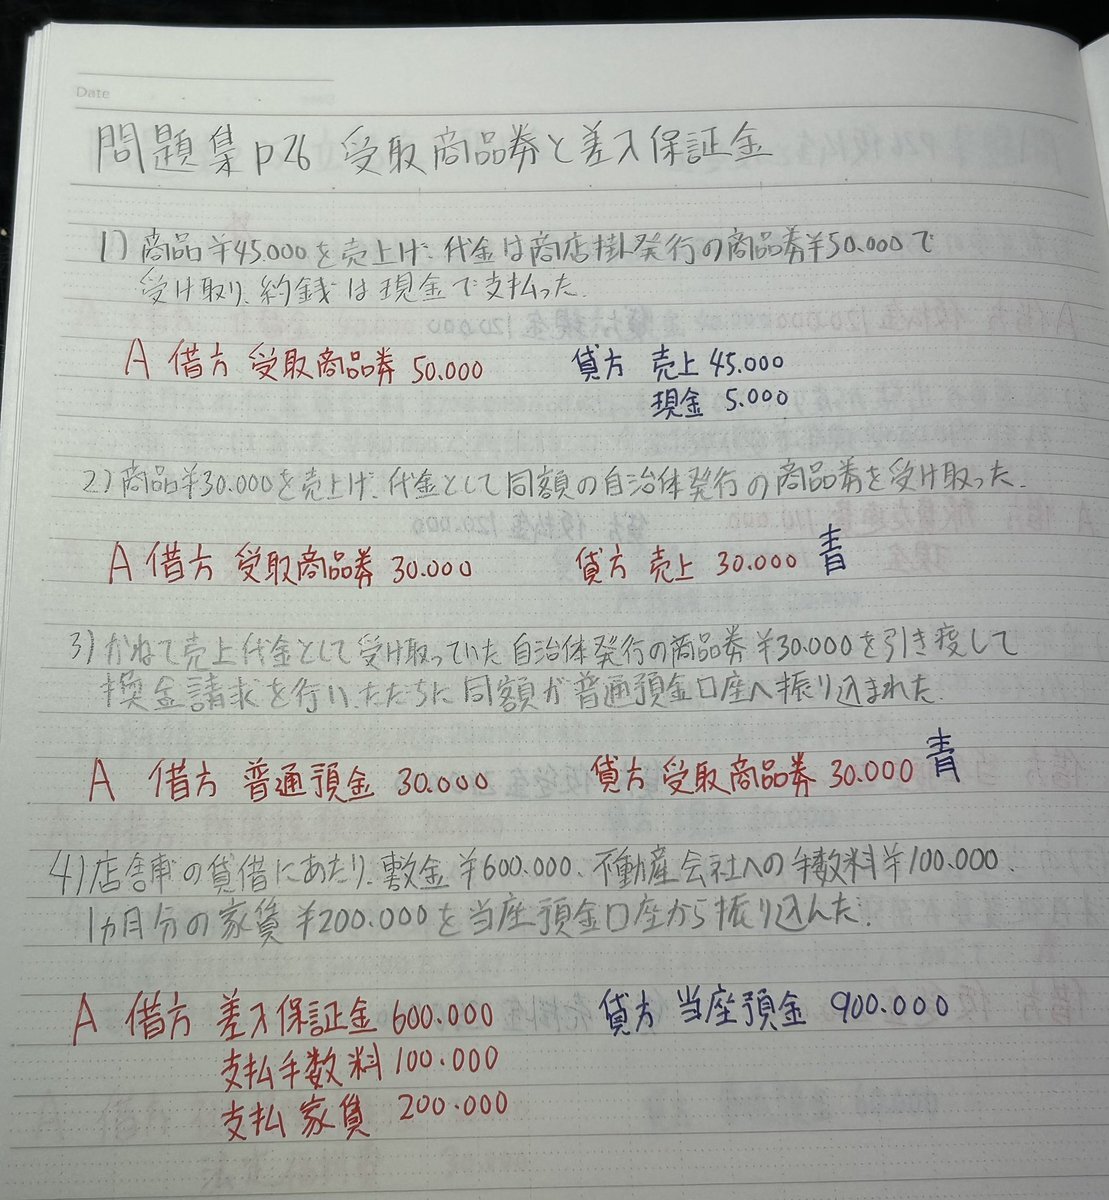 Date
問題集P26 受取商品券と差入保証金
1) 商品¥45.000を売上げ、代金は商店掛発行の商品券¥50.000で
受け取り、約銭は現金で支払った。
A 借方 受取商品券 50.000 貸方 売上 45.000
現金 5.000
2) 商品¥30.000を売上げ、代金として同額の自治体発行の商品券を受け取った。
A 借方 受取商品券 30.000 貸方 売上 30.000 青
3) かねて売上代金として受け取っていた自治体発行の商品券¥30.000を引き疫して
換金請求を行い、ただちに同額が普通預金口座へ振り込まれた。
A 借方 普通預金 30.000 貸方 受取商品券 30.000 青
4) 店舎の賃借にあたり、敷金¥600.000、不動産会社への手数料¥100.000
1ヵ月分の家賃¥200.000を当座預金口座から振り込んだ。
A 借方 差入保証金 600.000 貸方 当座預金 900.000
支払手数料 100.000
支払家賃 200.000